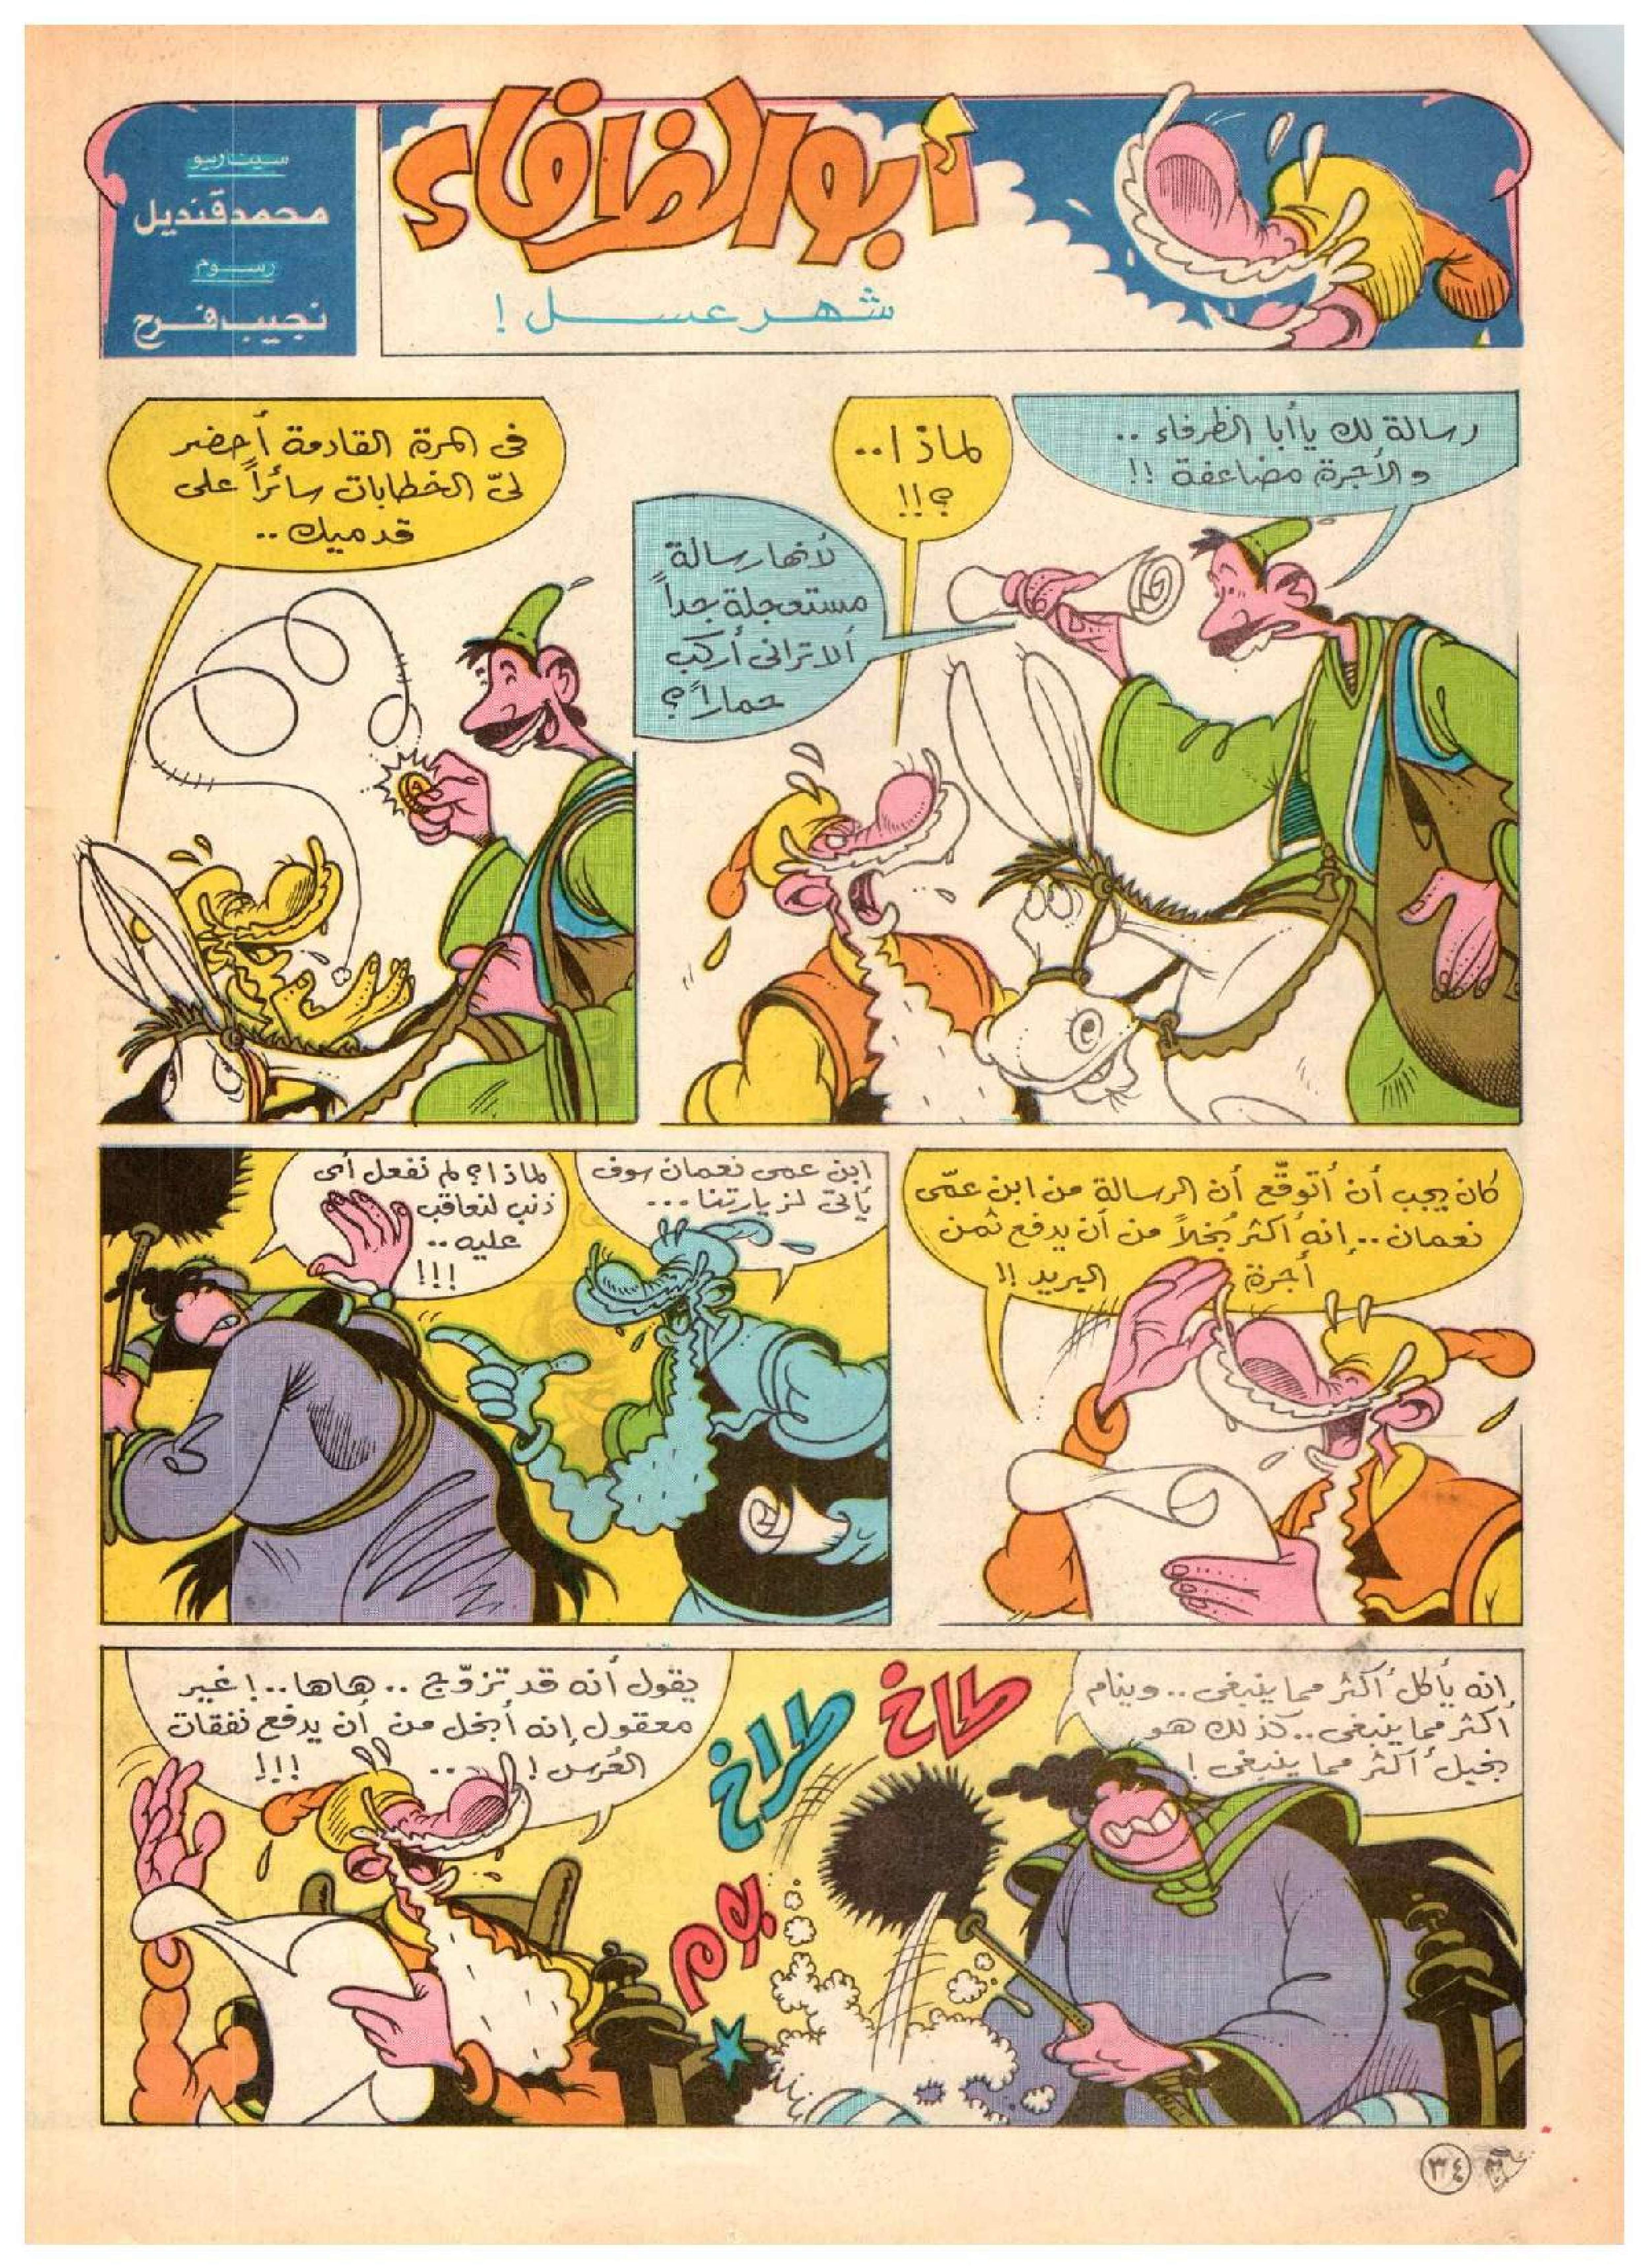 أبو الظرفاء
شهر عسل !
سيناريو
محمد قنديل
رسوم
نجيب فرح
رسالة لك يا أبا الظرفاء ..
والأجرة مضاعفة !!
لماذا ..
؟!!
لأنها رسالة
مستعجلة جداً
ألا ترانى أركب
حماراً؟
فى المرة القادمة أحضر
لىّ الخطابات سائراً على
قدميك ..
كان يجب أن أتوقّع أن الرسالة من ابن عمّى
نعمان .. إنه أكثر بُخلاً من أن يدفع ثمن
أجرة البريد !!
ابن عمى نعمان سوف
يأتى لزيارتنا ...
لماذا؟ لم نفعل أى
ذنب لنعاقب
عليه ..
!!!
إنه يأكل أكثر مما ينبغى .. وينام
أكثر مما ينبغى .. كذلك هو
بخيل أكثر مما ينبغى !
طاخ
طراخ
بوم
يقول أنه قد تزوّج .. هاها .. ! غير
معقول إنه أبخل من أن يدفع نفقات
العُرس ! .. !!!
٣٤